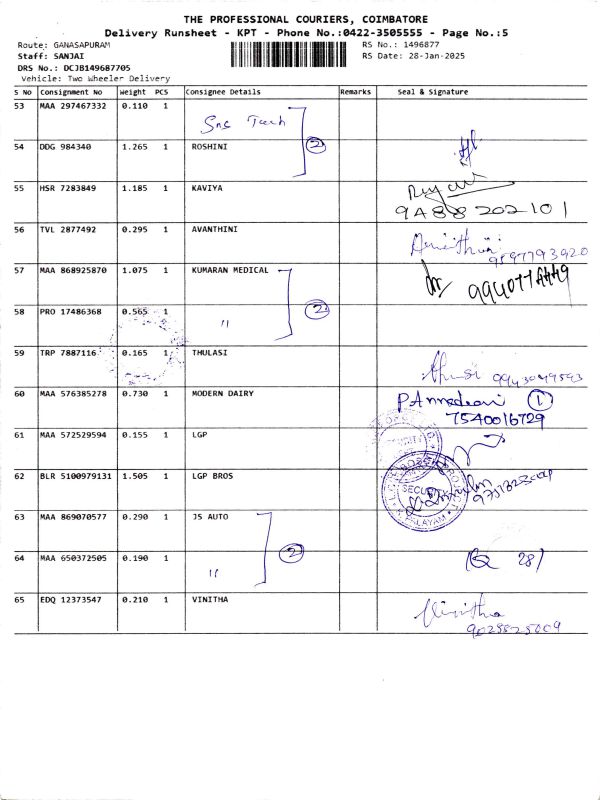 THE PROFESSIONAL COURIERS, COIMBATORE
Delivery Runsheet - KPT - Phone No.:0422-3505555 - Page No.:5
Route: GANASAPURAM
RS No.: 1496877
Staff: SANJAI
RS Date: 28-Jan-2025
DRS No.: DCJB149687705
Vehicle: Two Wheeler Delivery
S No Consignment No Weight PCS Consignee Details Remarks Seal & Signature
53 MAA 297467332 0.110 1
Sns Tech
2
54 DDG 984340 1.265 1 ROSHINI
55 HSR 7283849 1.185 1 KAVIYA
9488202101
56 TVL 2877492 0.295 1 AVANTHINI
9597793920
57 MAA 868925870 1.075 1 KUMARAN MEDICAL
58 PRO 17486368 0.565 1 " 2
59 TRP 7887116 0.165 1 THULASI
60 MAA 576385278 0.730 1 MODERN DAIRY
1
7540016729
61 MAA 572529594 0.155 1 LGP
62 BLR 5100979131 1.505 1 LGP BROS
SECURITY
63 MAA 869070577 0.290 1 J5 AUTO
2
64 MAA 650372505 0.190 1 "
65 EDQ 12373547 0.210 1 VINITHA
Vinitha